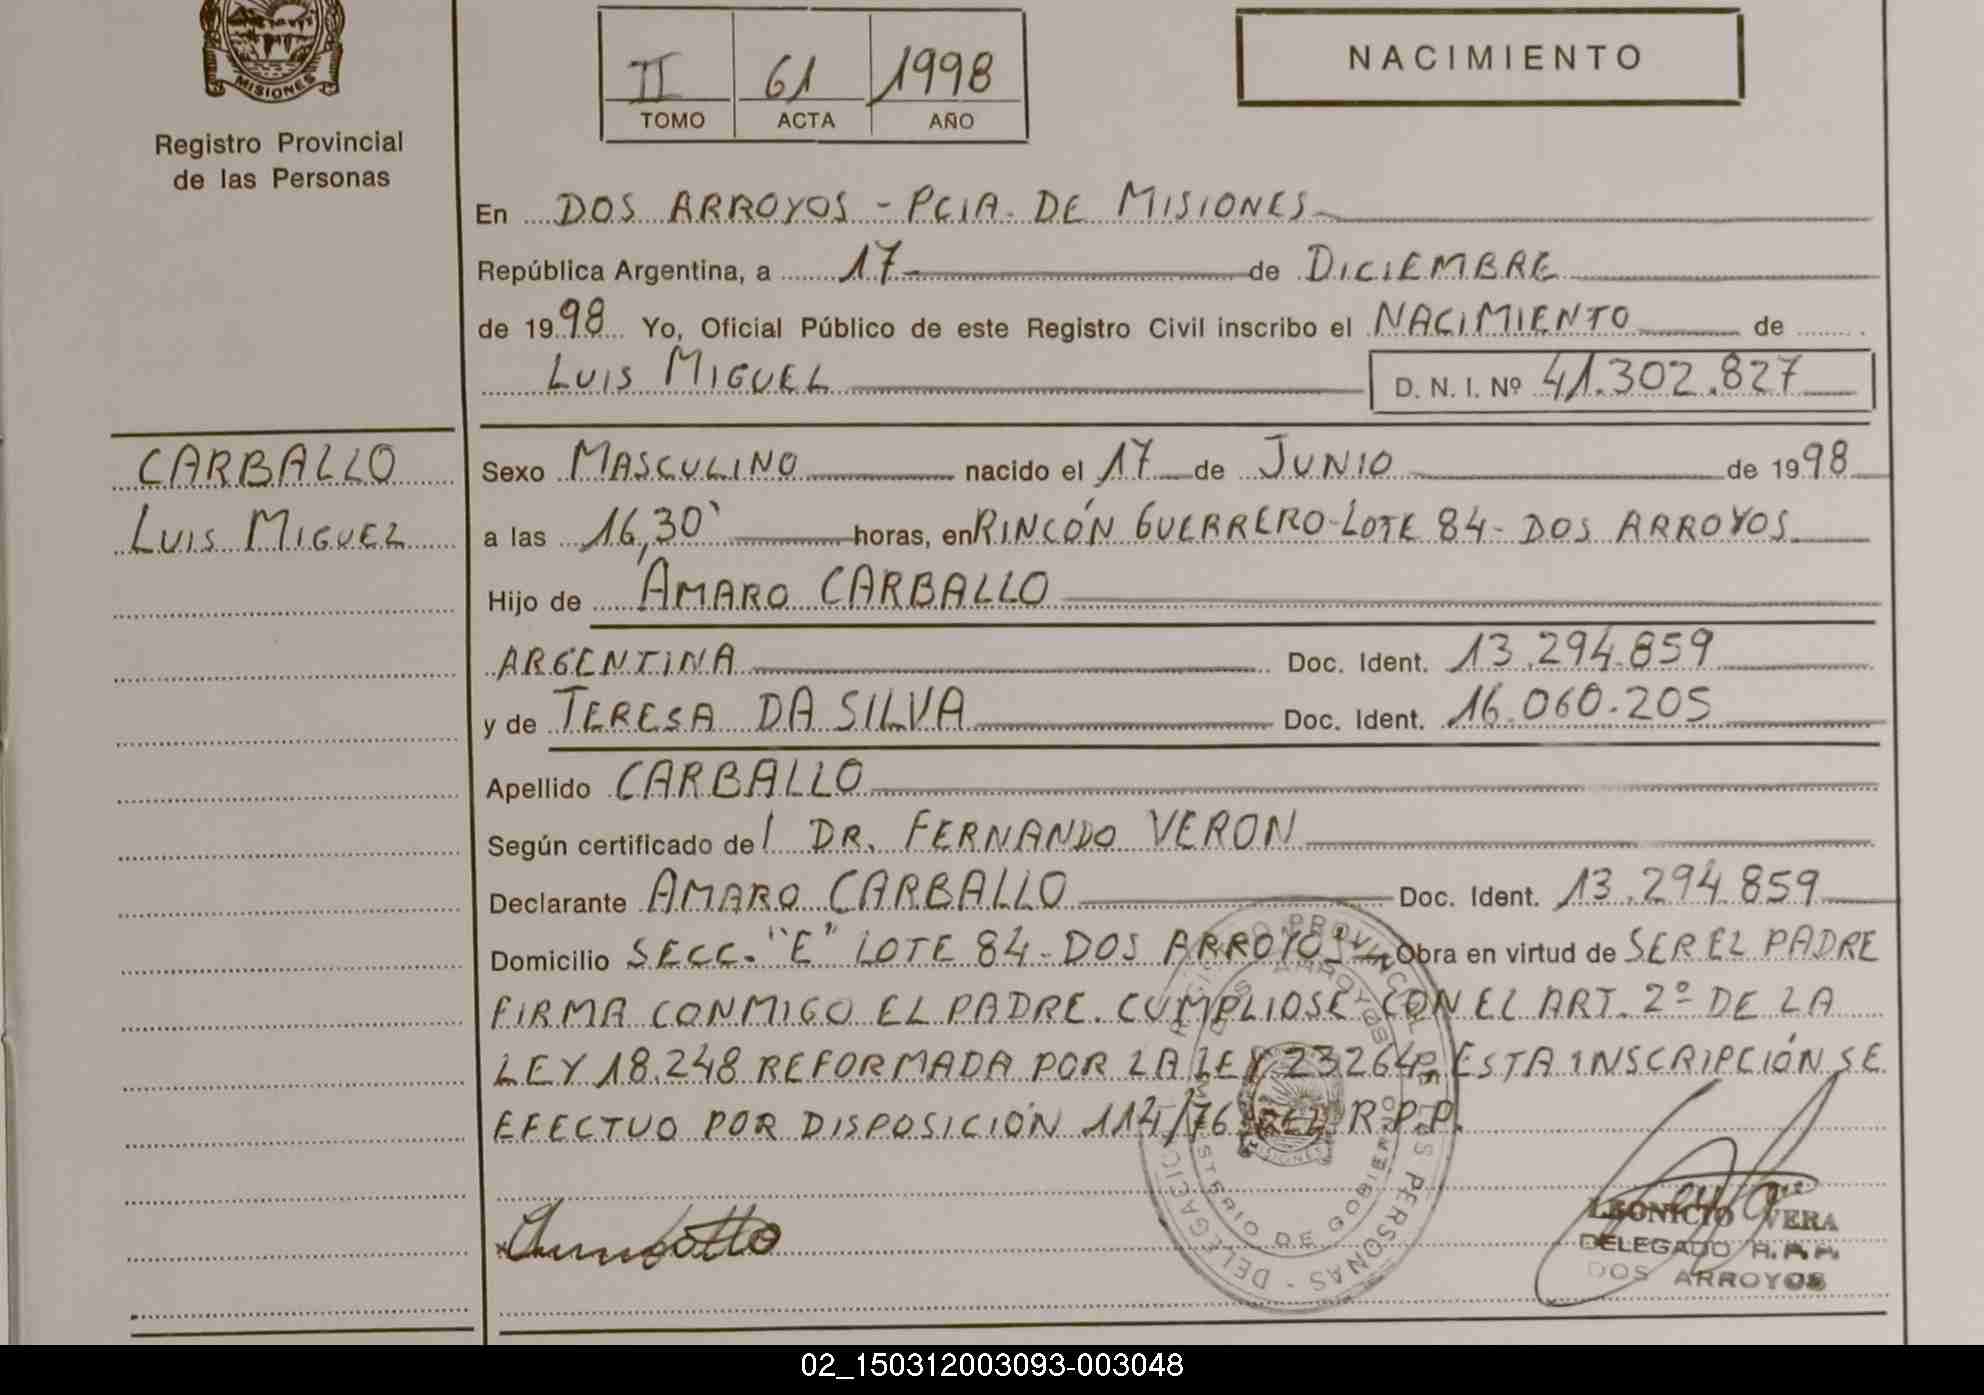 MISIONES
Registro Provincial
de las Personas
II 61 1998
TOMO ACTA AÑO
NACIMIENTO
En DOS ARROYOS - PCIA. DE MISIONES
República Argentina, a 17 de DICIEMBRE
de 1998 Yo, Oficial Público de este Registro Civil inscribo el NACIMIENTO de
LUIS MIGUEL D. N. I. Nº 41.302.827
CARBALLO
LUIS MIGUEL
Sexo MASCULINO nacido el 17 de JUNIO de 1998
a las 16,30' horas, en RINCÓN GUERRERO-LOTE 84- DOS ARROYOS
Hijo de AMARO CARBALLO
ARGENTINA Doc. Ident. 13.294.859
y de TERESA DA SILVA Doc. Ident. 16.060.205
Apellido CARBALLO
Según certificado del DR. FERNANDO VERON
Declarante AMARO CARBALLO Doc. Ident. 13.294.859
Domicilio SECC. "E" LOTE 84 - DOS ARROYOS Obra en virtud de SER EL PADRE
FIRMA CONMIGO EL PADRE. CUMPLIOSE CON EL ART. 2º DE LA
LEY 18.248 REFORMADA POR LA LEY 23264, ESTA INSCRIPCIÓN SE
EFECTUO POR DISPOSICIÓN 114/76 DEL R.P.P.
REGISTRO PROVINCIAL DE LAS PERSONAS - DELEGACION
DOS ARROYOS
MINISTERIO DE GOBIERNO
MISIONES
LEONICIO VERA
DELEGADO R.P.P.
DOS ARROYOS
02_150312003093-003048